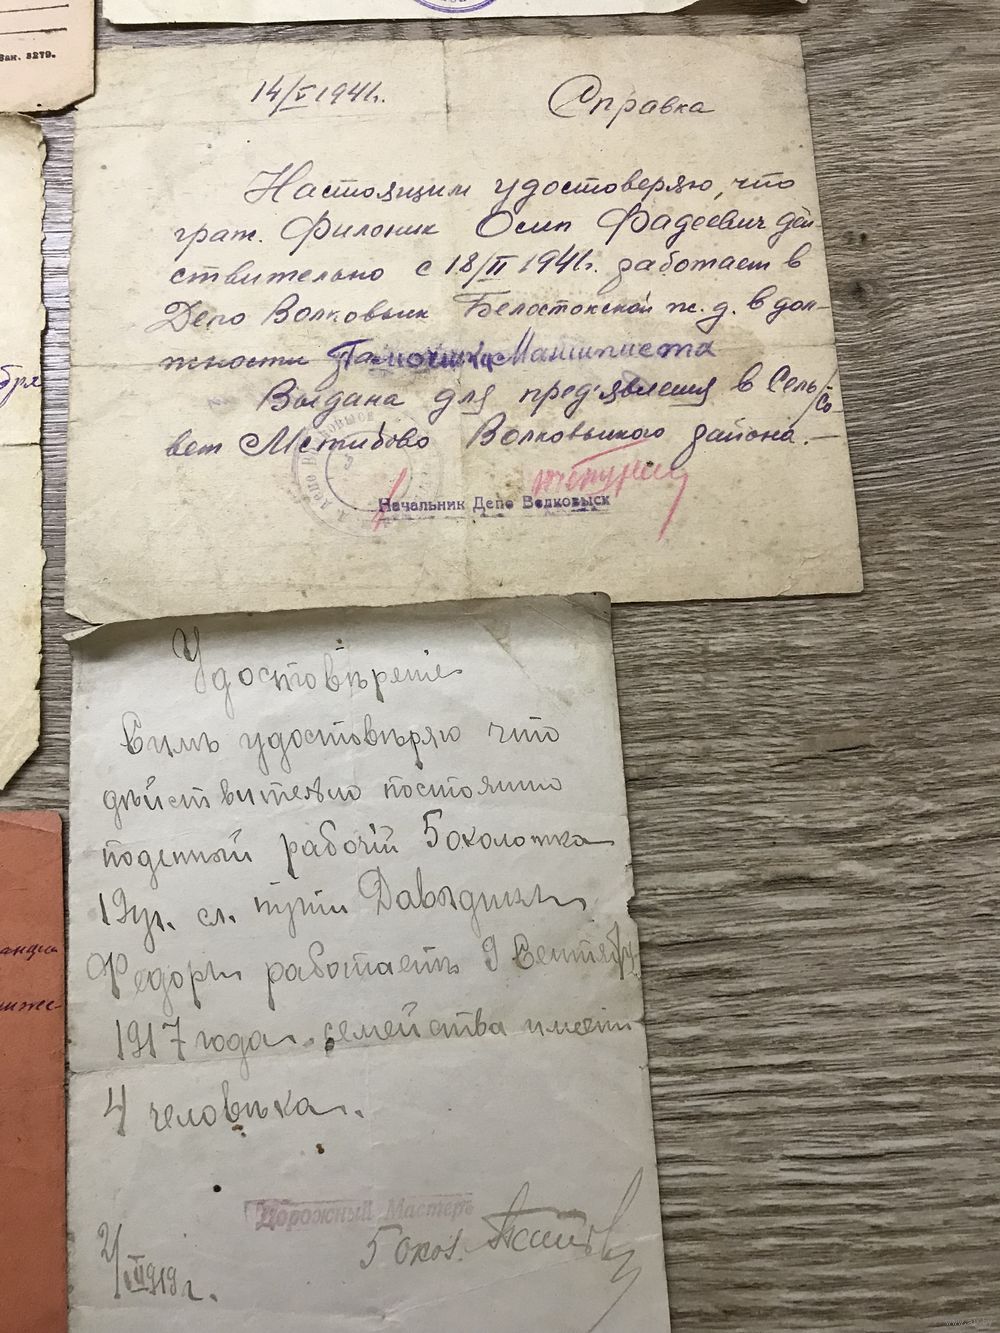 Зак. 3279.
14/V 1941г.
Справка
Настоящим удостоверяю, что
граж. Филоник Осип Фадеевич дей
ствительно с 18/II 1941г. работает в
Депо Волковыск Белостокской ж.д. в дол-
жности Машиниста
Выдана для пред'явления в Сель/Со
вет Мстибово Волковыского района.
Начальник Депо Волковыск
бря
Удостовѣреніе
Симъ удостовѣряю что
дѣйствительно постоянно
поденный рабочій 5 околотка
12 уч. сл. пути Давыдикъ
Федоръ работаетъ 9 Сентябр
1917 года. семейства имеетъ
4 человѣка.
Дорожный Мастеръ
5 окол.
2/III 1919 г.
анция